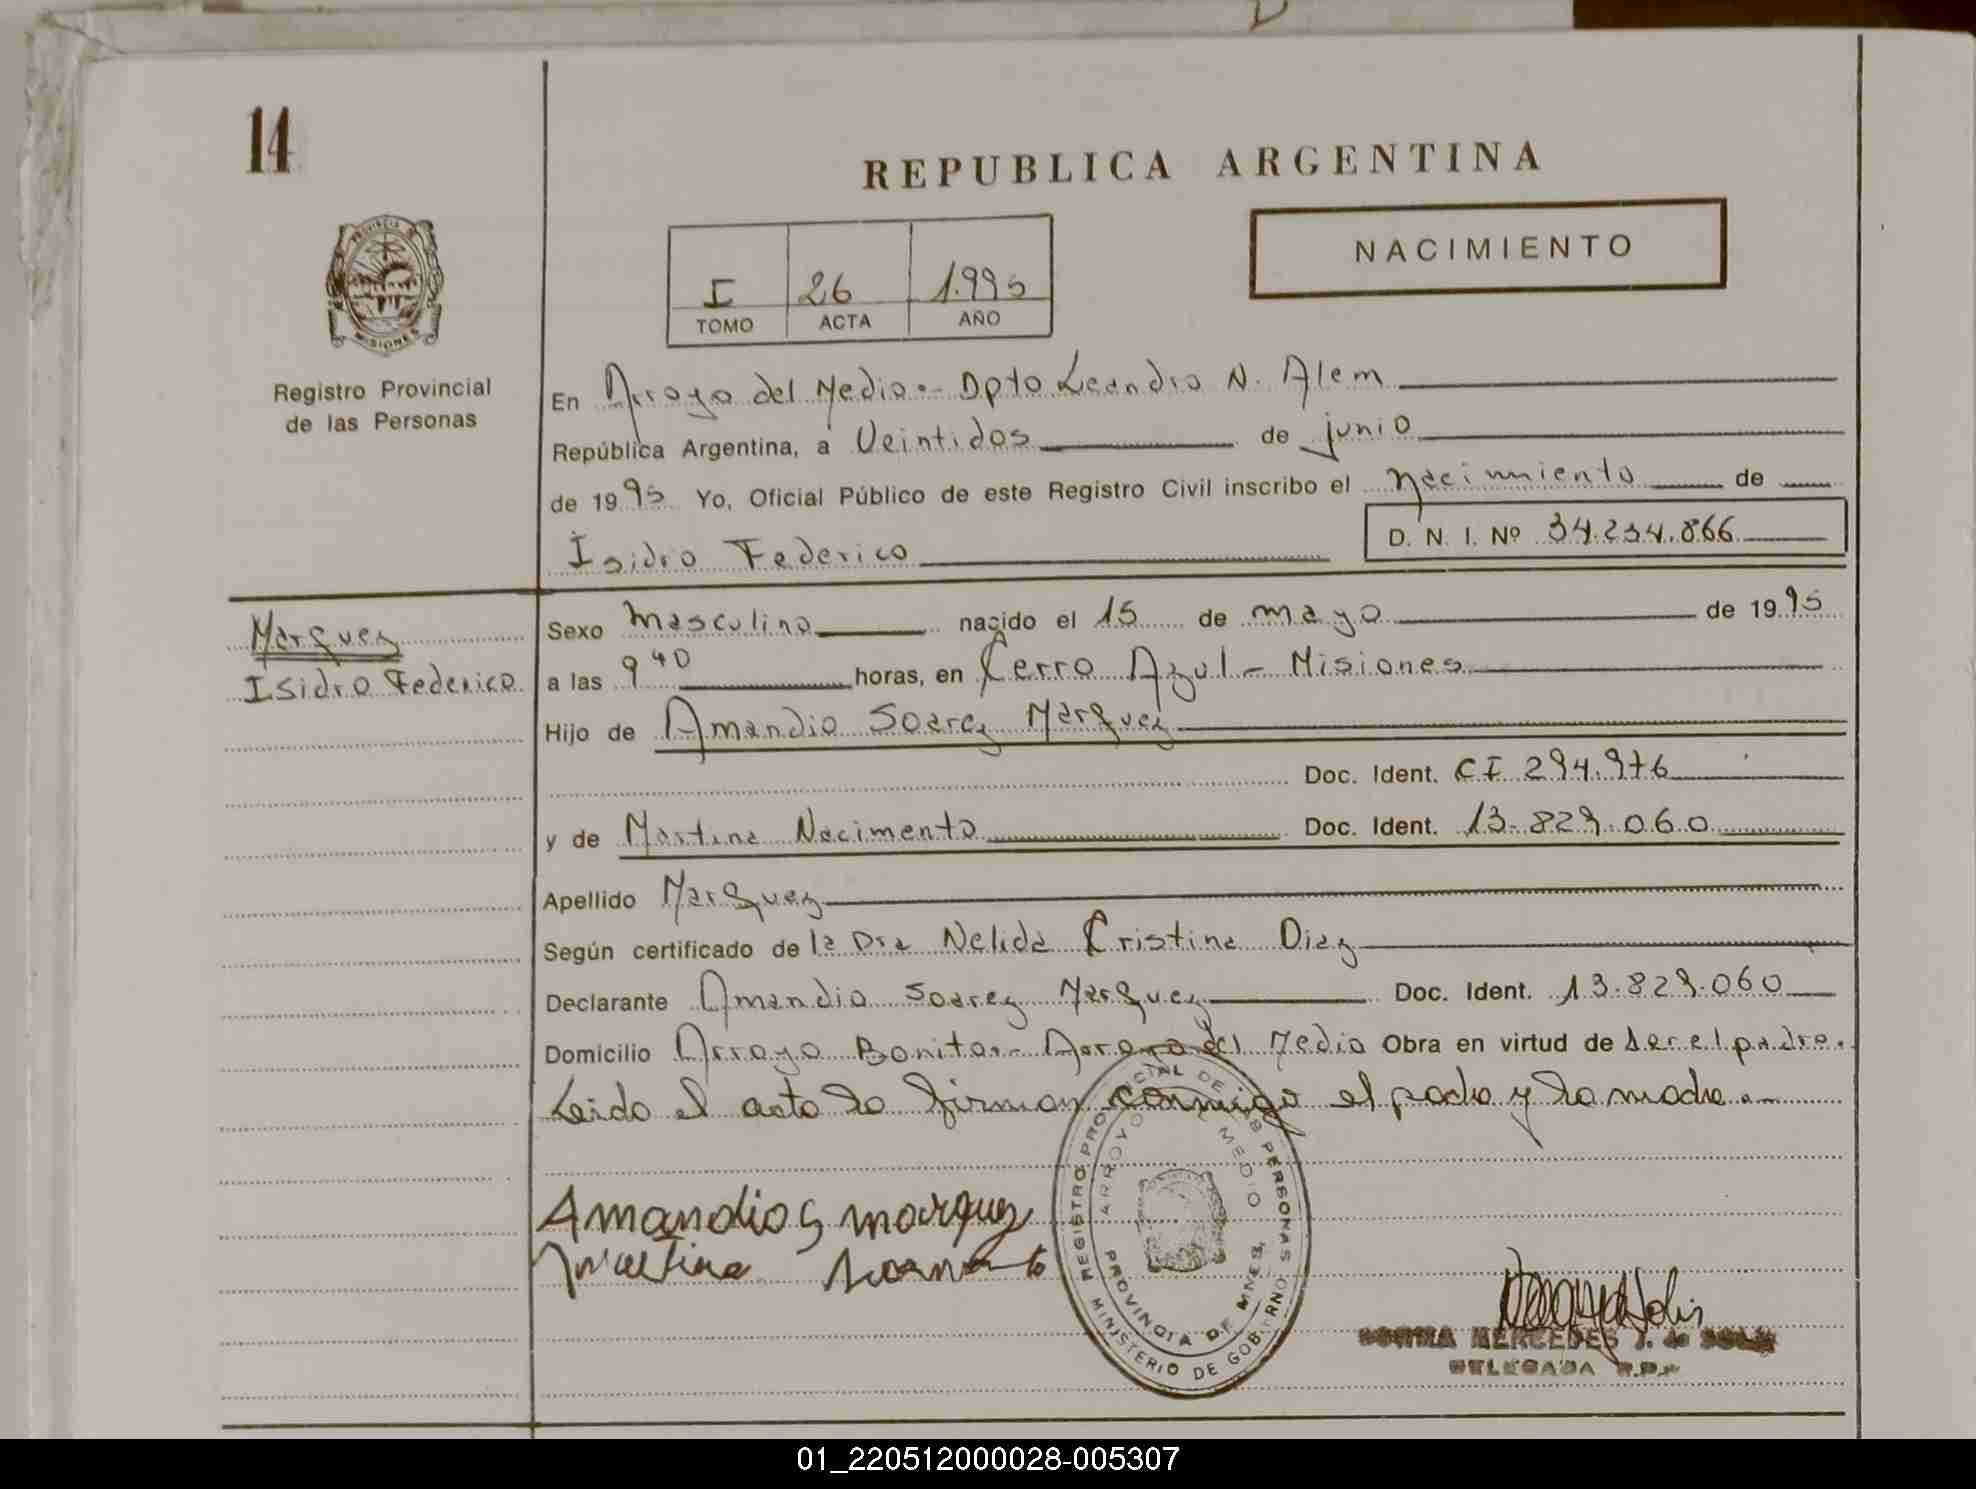 14
REPUBLICA ARGENTINA
PROVINCIA DE
MISIONES
Registro Provincial
de las Personas
NACIMIENTO
I 26 1.995
TOMO ACTA AÑO
En Arroyo del Medio.- Dpto Leandro N. Alem
República Argentina, a Veintidos de junio
de 1995 Yo, Oficial Público de este Registro Civil inscribo el nacimiento de
Isidro Federico
D. N. I. Nº 34.234.866
Marquez
Isidro Federico
Sexo masculino nacido el 15 de mayo de 1995
a las 9 40 horas, en Cerro Azul - Misiones
Hijo de Amandio Soarez Marquez
Doc. Ident. CI 294.976
y de Martina Nacimento Doc. Ident. 13.829.060
Apellido Marquez
Según certificado de la Dra Nelida Cristina Diaz
Declarante Amandio Soarez Marquez Doc. Ident. 13.829.060
Domicilio Arroyo Bonito.- Arroyo del Medio Obra en virtud de ser el padre.
Leido el acta la firman conmigo el padre y la madre.-
Amandio S marquez
martina
REGISTRO PROVINCIAL DE LAS PERSONAS
MINISTERIO DE GOBIERNO
ARROYO MEDIO
PROVINCIA DE MNES.
MERCEDES J. de
DELEGADA R.P.P
01_220512000028-005307